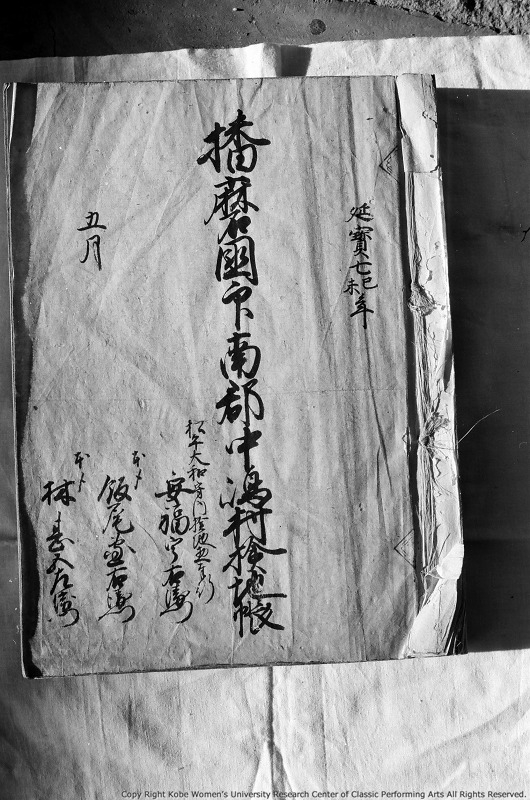 延寳七己未年
播磨國印南郡中嶋村検地帳
松平大和守内検地奉行
安福 右衛
飯尾 右衛
林 五左衛
五月
Copy Right Kobe Women's University Research Center of Classic Performing Arts All Rights Reserved.